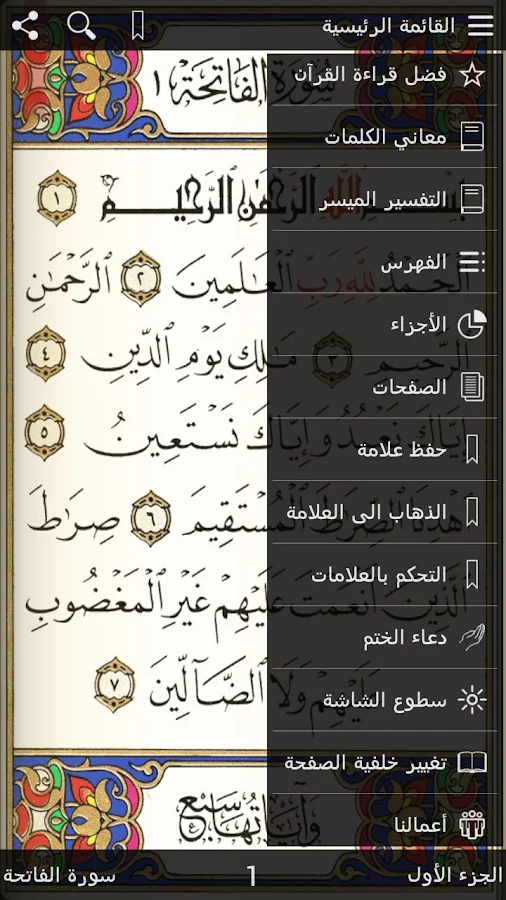 القائمة الرئيسية
سورة الفاتحة ١
فضل قراءة القرآن
معاني الكلمات
التفسير الميسر
الفهرس
الأجزاء
الصفحات
حفظ علامة
الذهاب الى العلامة
التحكم بالعلامات
دعاء الختم
سطوع الشاشة
تغيير خلفية الصفحة
أعمالنا
بِسْمِ ٱللَّهِ ٱلرَّحْمَٰنِ ٱلرَّحِيمِ ١
ٱلْحَمْدُ لِلَّهِ رَبِّ ٱلْعَٰلَمِينَ ٢ ٱلرَّحْمَٰنِ
ٱلرَّحِيمِ ٣ مَٰلِكِ يَوْمِ ٱلدِّينِ ٤
إِيَّاكَ نَعْبُدُ وَإِيَّاكَ نَسْتَعِينُ ٥
ٱهْدِنَا ٱلصِّرَٰطَ ٱلْمُسْتَقِيمَ ٦ صِرَٰطَ
ٱلَّذِينَ أَنْعَمْتَ عَلَيْهِمْ غَيْرِ ٱلْمَغْضُوبِ
عَلَيْهِمْ وَلَا ٱلضَّآلِّينَ ٧
وَآيَاتُهَا سَبْعٌ
الجزء الأول
1
سورة الفاتحة